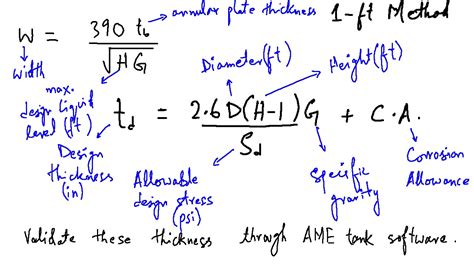 W = 390 tb / √HG → annular plate thickness 1-ft Method
width
max. design liquid level (ft)
Diameter(ft)
Height(ft)
td = 2.6D(H-1)G / Sd + C.A.
Design thickness (in)
Allowable design stress (psi)
Specific gravity
Corrosion Allowance
Validate these thickness through AME tank software.